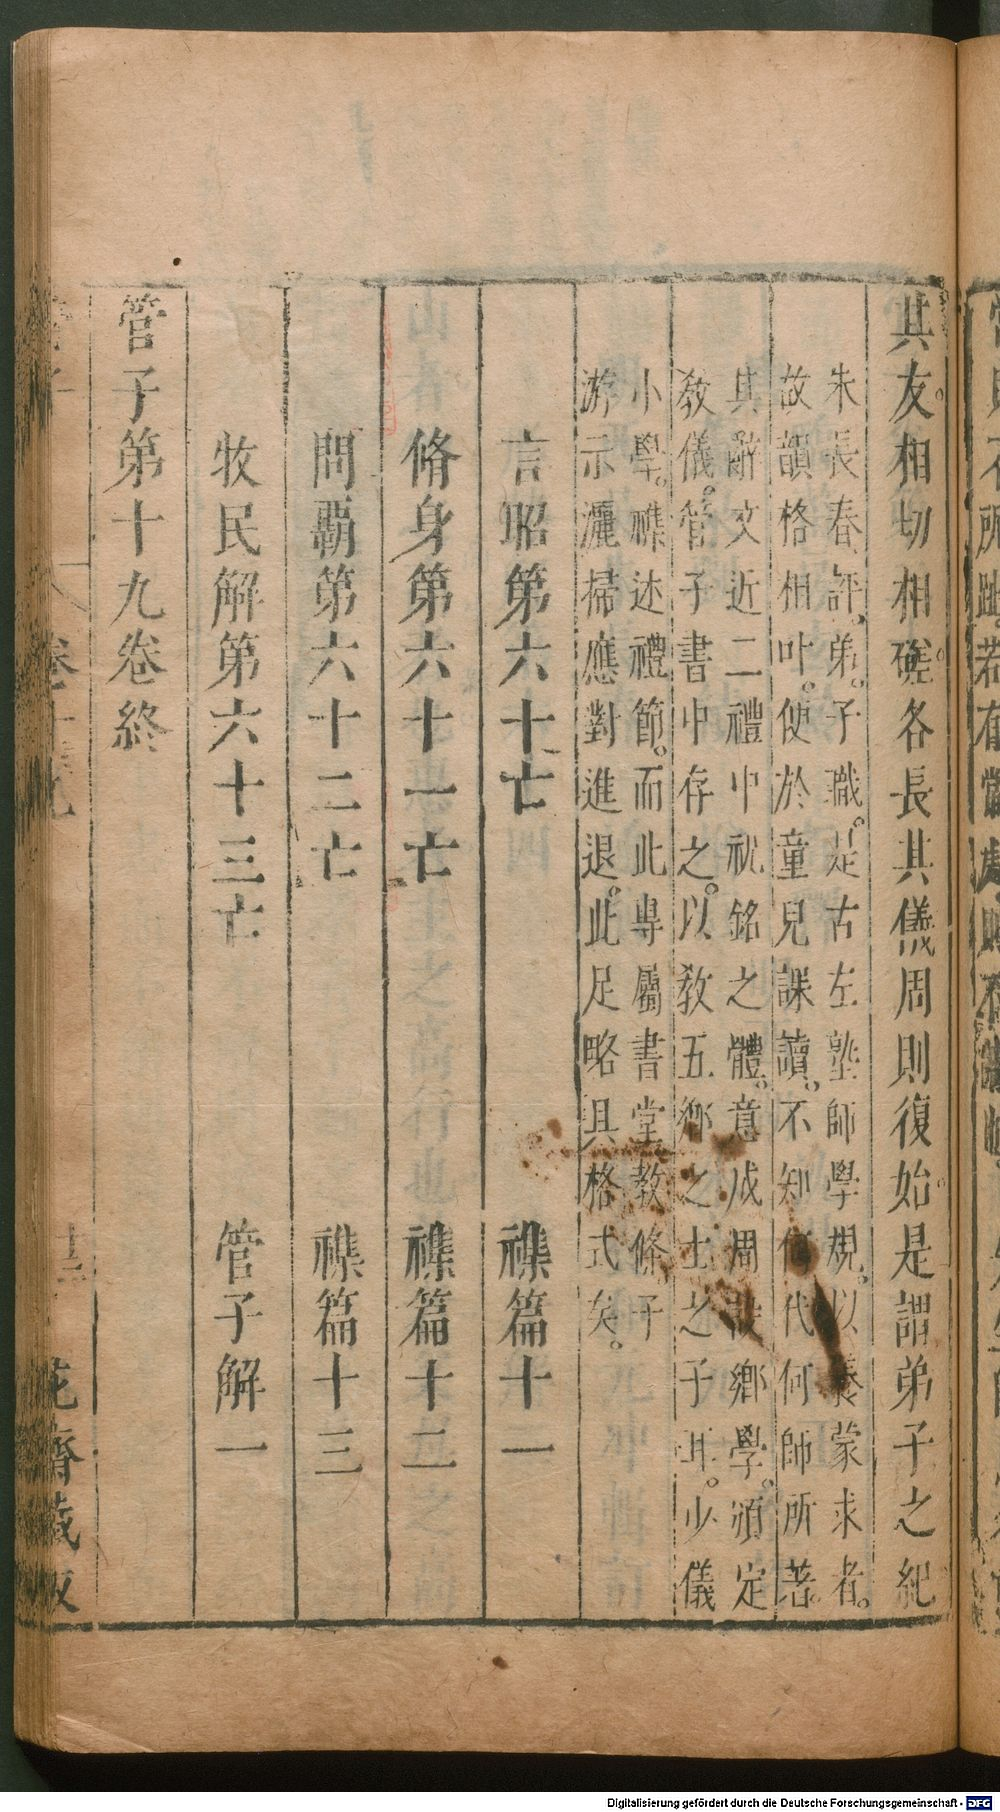 其友相切相磋各長其儀周則復始是謂弟子之紀
朱長春評弟子職是古左塾師學規以養蒙求者
故韻格相叶使於童兒課讀不知何代何師所著
其辭文近二禮中祝銘之體意成周設鄉學頒定
敎儀管子書中存之以敎五鄉之士之子耳少儀
小學襍述禮節而此專屬書堂教條于
游示灑掃應對進退此足略具格式矣
言昭第六十亡 襍篇十一
脩身第六十一亡 襍篇十二
問霸第六十二亡 襍篇十三
牧民解第六十三亡 管子解一
管子第十九卷終
管子 卷十九 十三 花齋藏板
Digitalisierung gefördert durch die Deutsche Forschungsgemeinschaft - DFG